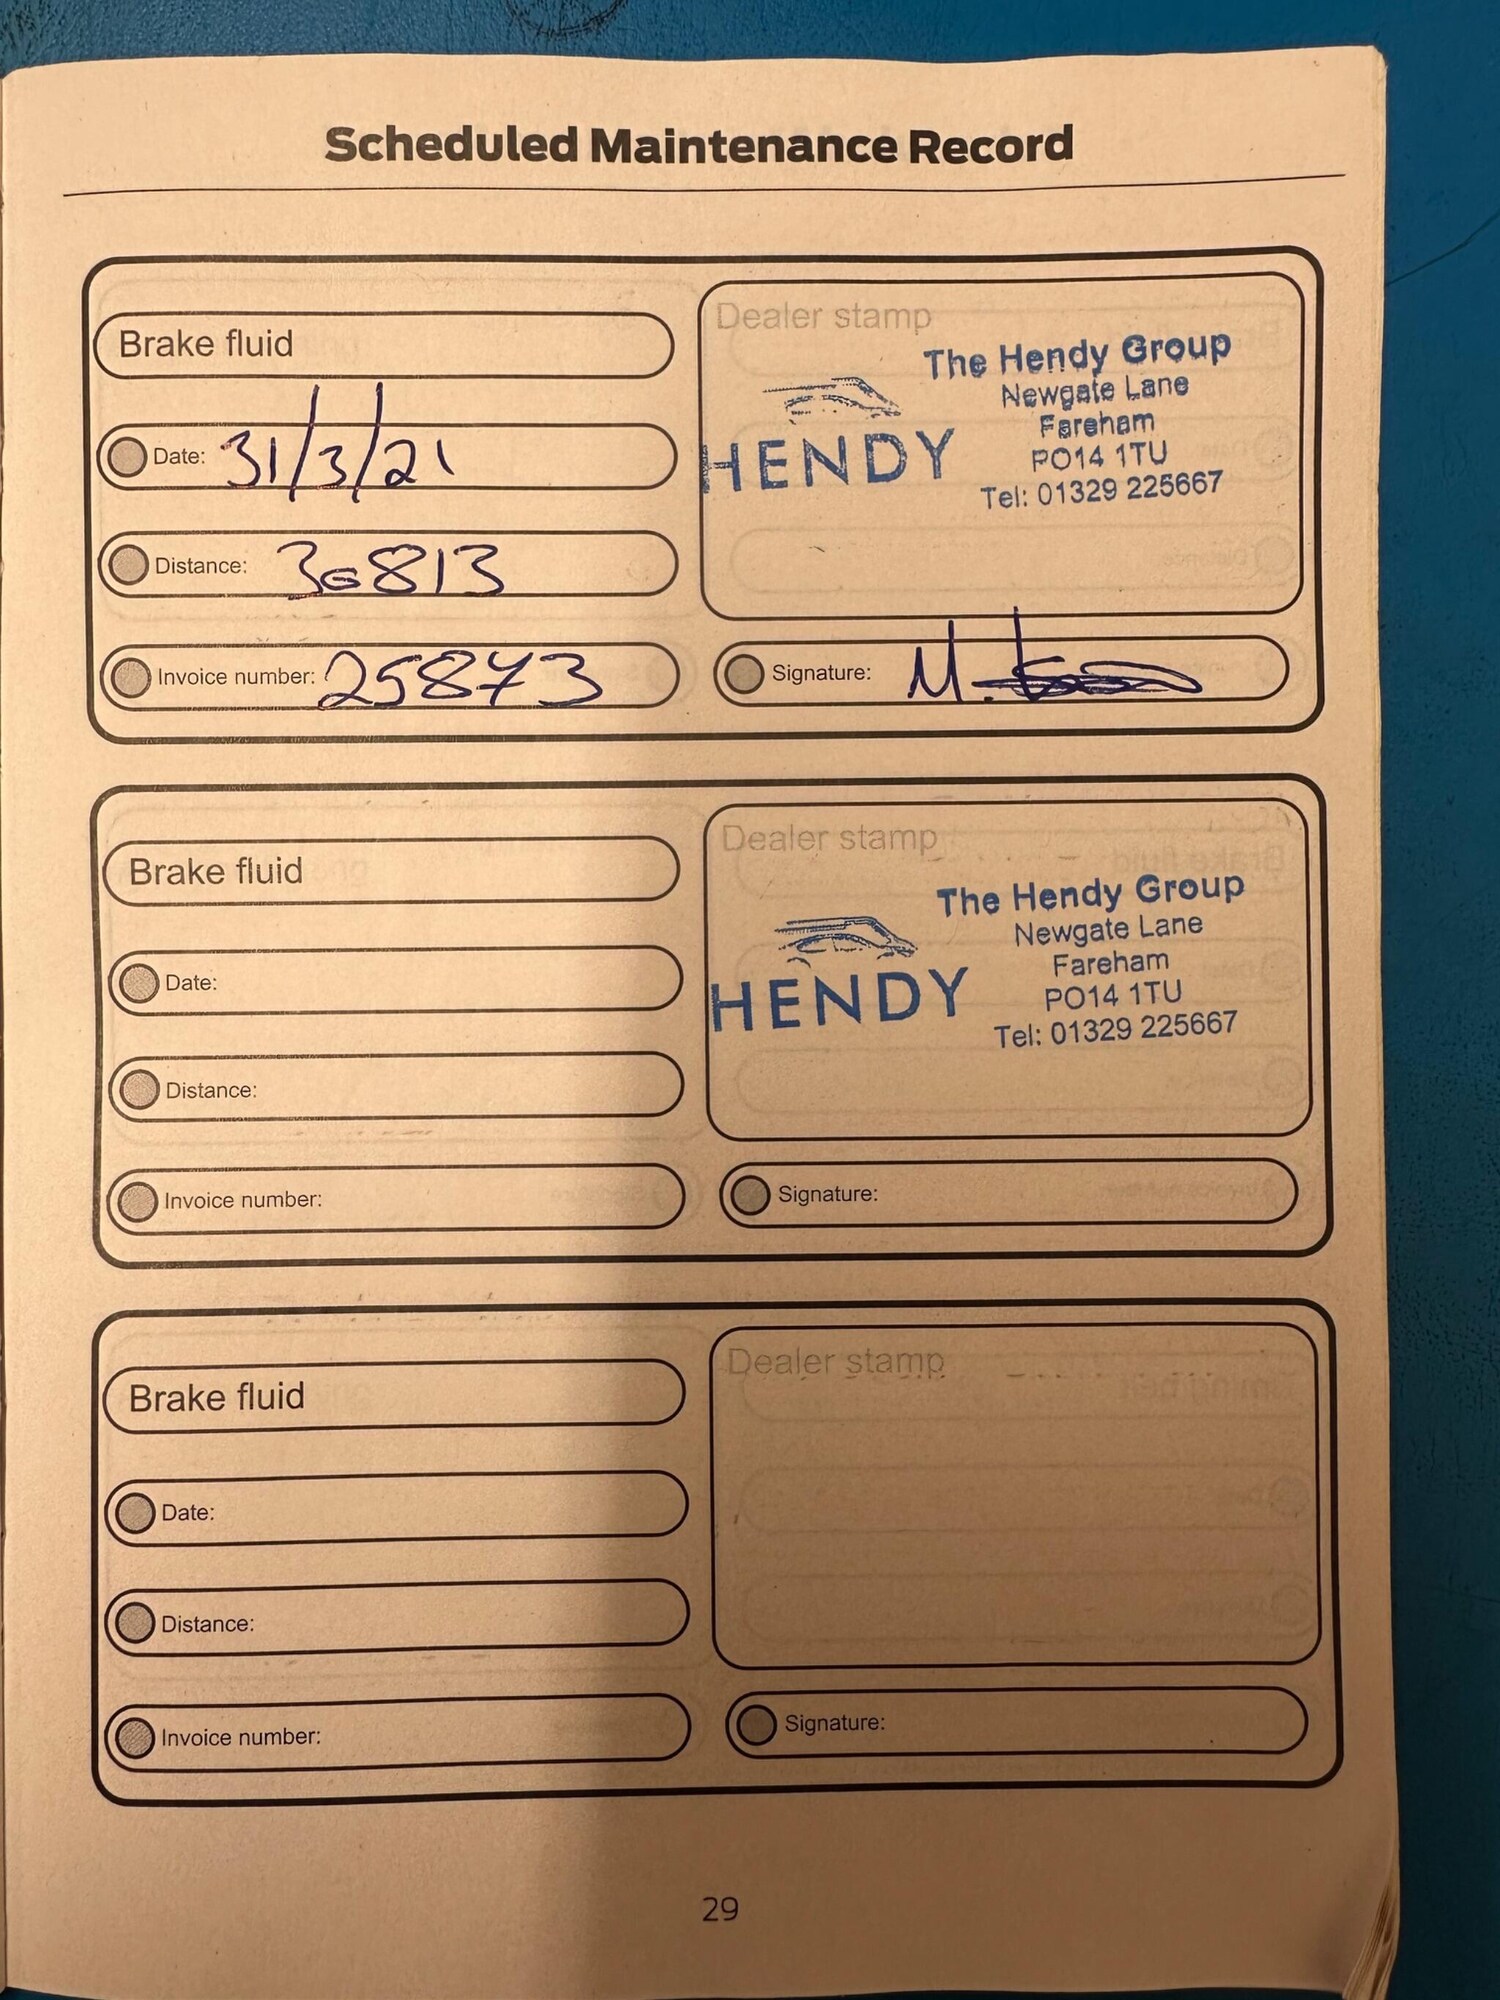 Scheduled Maintenance Record
Brake fluid
Date: 31/3/21
Distance: 30813
Invoice number: 25873
Dealer stamp
HENDY
The Hendy Group
Newgate Lane
Fareham
PO14 1TU
Tel: 01329 225667
Signature:
Brake fluid
Date:
Distance:
Invoice number:
Dealer stamp
HENDY
The Hendy Group
Newgate Lane
Fareham
PO14 1TU
Tel: 01329 225667
Signature:
Brake fluid
Date:
Distance:
Invoice number:
Dealer stamp
Signature:
29